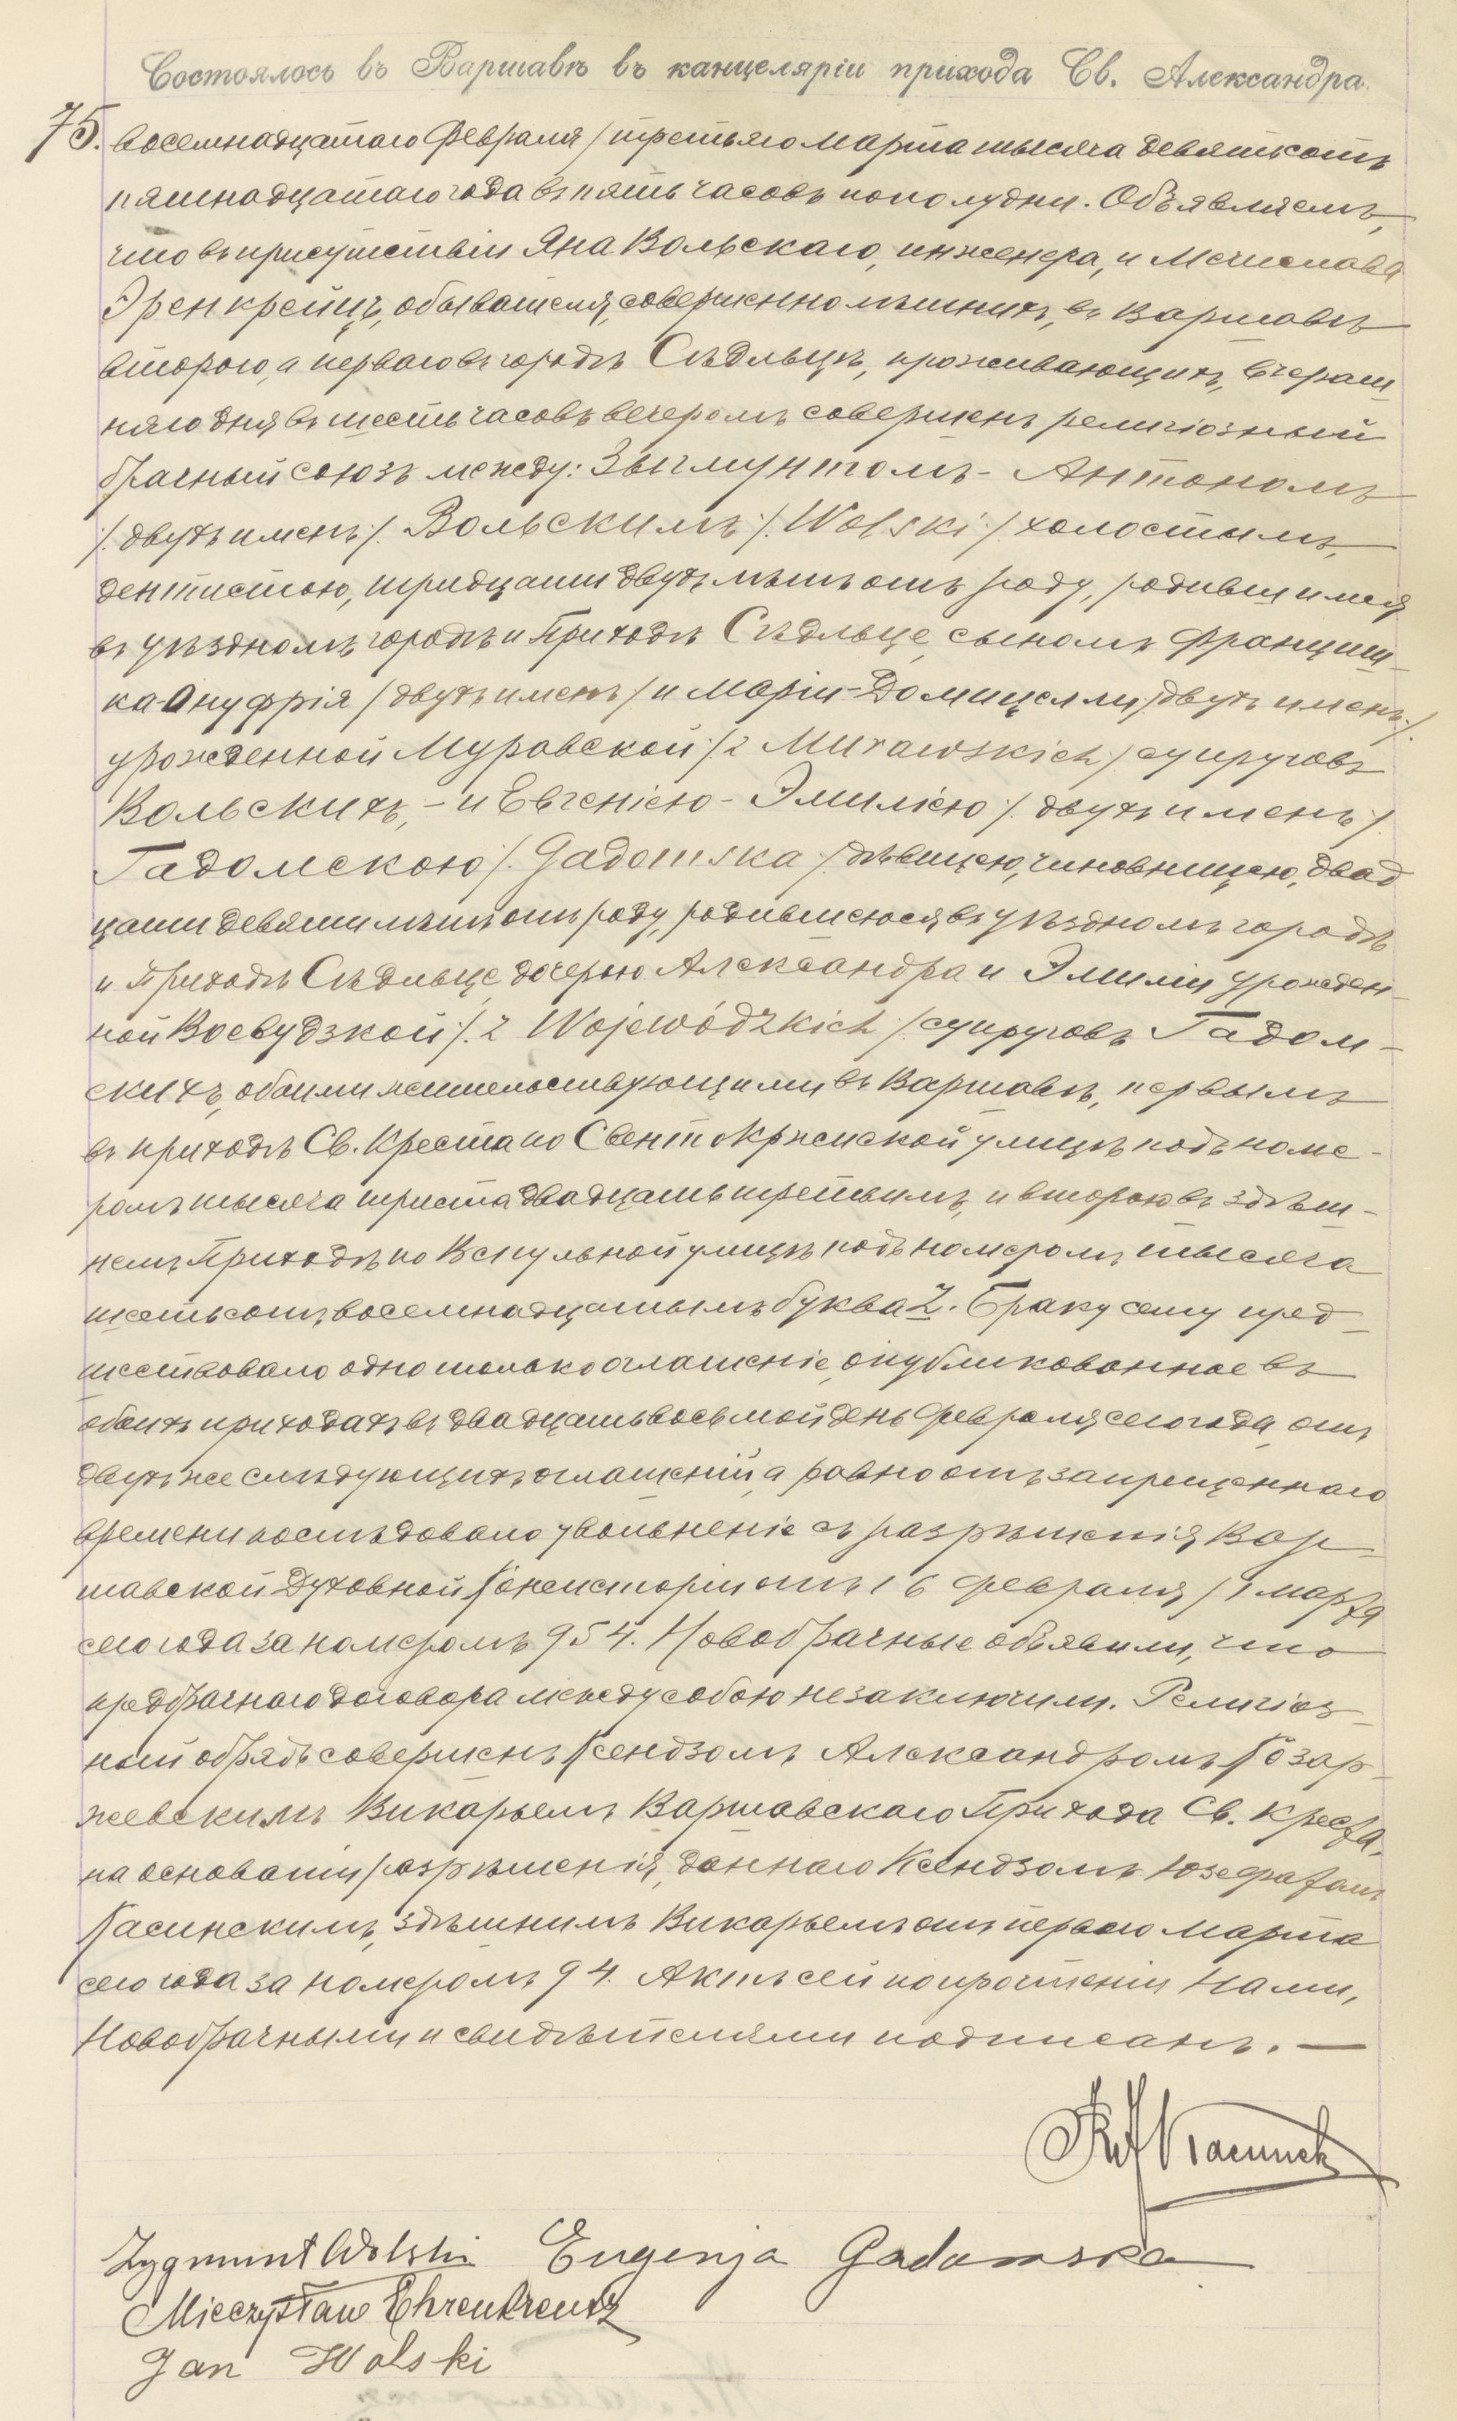 Состоялось въ Варшавѣ въ канцеляріи прихода Св. Александра
75. восемнадцатаго Февраля /третьяго Марта тысяча девятьсотъ
пятнадцатаго года въ пять часовъ пополудни. Объявляемъ,
что въ присутствіи Яна Вольскаго, инженера, и Мечислава
Эренкрейцъ, обывателя, совершеннолѣтнихъ, въ Варшавѣ
второго, а перваго въ городѣ Сѣдльцѣ, проживающихъ, вчераш
няго дня въ шесть часовъ вечеромъ совершенъ религіозный
брачный союзъ между: Зыгмунтомъ-Антономъ
/. двухъ именъ /. Вольскимъ /. Wolski /. холостымъ,
дентистою, тридцати двухъ лѣтъ отъ роду, родившимся
въ уѣздномъ городѣ и Приходѣ Сѣдльце, сыномъ Францищ-
ка-Онуфрія /двухъ именъ/ и Маріи-Домицелли /двухъ именъ/.
урожденной Муравской /. z Murawskich /. супруговъ
Вольскихъ, - и Евгеніею-Эмиліею /. двухъ именъ /.
Гадомскою /. Gadomska /. дѣвицею, чиновницею, двад
цати девяти лѣтъ отъ роду, родившеюся въ уѣздномъ городѣ
и Приходѣ Сѣдльце, дочерью Александра и Эмиліи урожден-
ной Воевудзкой /. z Wojewódzkich /. супруговъ Гадом-
скихъ, обоими жительствующими въ Варшавѣ, первымъ
въ приходѣ Св. Креста по Свентокржиской улицѣ подъ номе-
ромъ тысяча триста двадцать третьимъ, и второю въ здѣш-
немъ Приходѣ по Вспульной улицѣ подъ номеромъ тысяча
шестьсотъ восемнадцатымъ буква Z. Браку сему пред-
шествовало одно только оглашеніе, опубликованное въ
обоихъ приходахъ въ двадцать восьмой день Февраля сего года, отъ
двухъ же слѣдующихъ оглашеній, а равно отъ запрещеннаго
времени послѣдовало увольненіе съ разрѣшенія Вар-
шавской Духовной Консисторіи отъ 16 Февраля /1 Марта
сего года за номеромъ 954. Новобрачные объявили, что
предбрачнаго договора между собою незаключили. Религіоз-
ный обрядъ совершенъ Ксендзомъ Александромъ Козар-
жевскимъ Викарьемъ Варшавскаго Прихода Св. Креста,
на основаніи разрѣшенія, даннаго Ксендзомъ Юзефатомъ
Касинскимъ, здѣшнимъ Викарьемъ отъ перваго Марта
сего года за номеромъ 94. Актъ сей по прочтеніи Нами,
Новобрачными и свидѣтелями подписанъ. —
Zygmunt Wolski Eugenja Gadomska
Mieczysław Ehrenkreutz
Jan Wolski